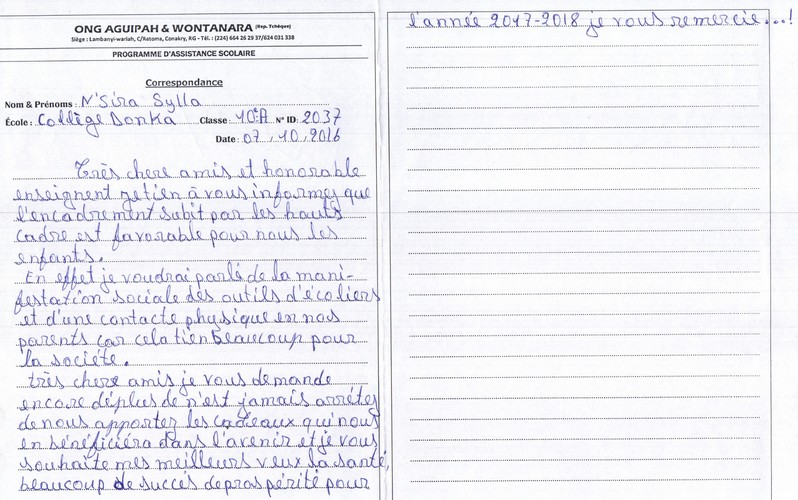 ONG AGUIPAH & WONTANARA (Rep. Tchèque)
Siège : Lambanyi-wariah, C/Ratoma, Conakry, RG - Tél. : (224) 664 26 29 37/624 031 338
PROGRAMME D'ASSISTANCE SCOLAIRE
Correspondance
Nom & Prénoms : N'Sira Sylla
École : Collège Donka Classe : 10e A N° ID: 2037
Date : 07, 10, 2016
Très chere amis et honorable
enseignent je tien à vous informez que
l'encadrement subit par les hauts
cadre est favorable pour nous les
enfants.
En effet je voudrai parlé de la mani-
festation sociale des outils d'écoliers
et d'une contacte physique en nos
parents car cela tien beaucoup pour
la société.
très chere amis je vous demande
encore déplus de n'est jamais arrêtez
de nous apportez les cadeaux qui nous
en bénéficiéra dans l'avenir et je vous
souhaite mes meilleurs veux la santé,
beaucoup de succés de praspérité pour
l'année 2017-2018 je vous remercie...!